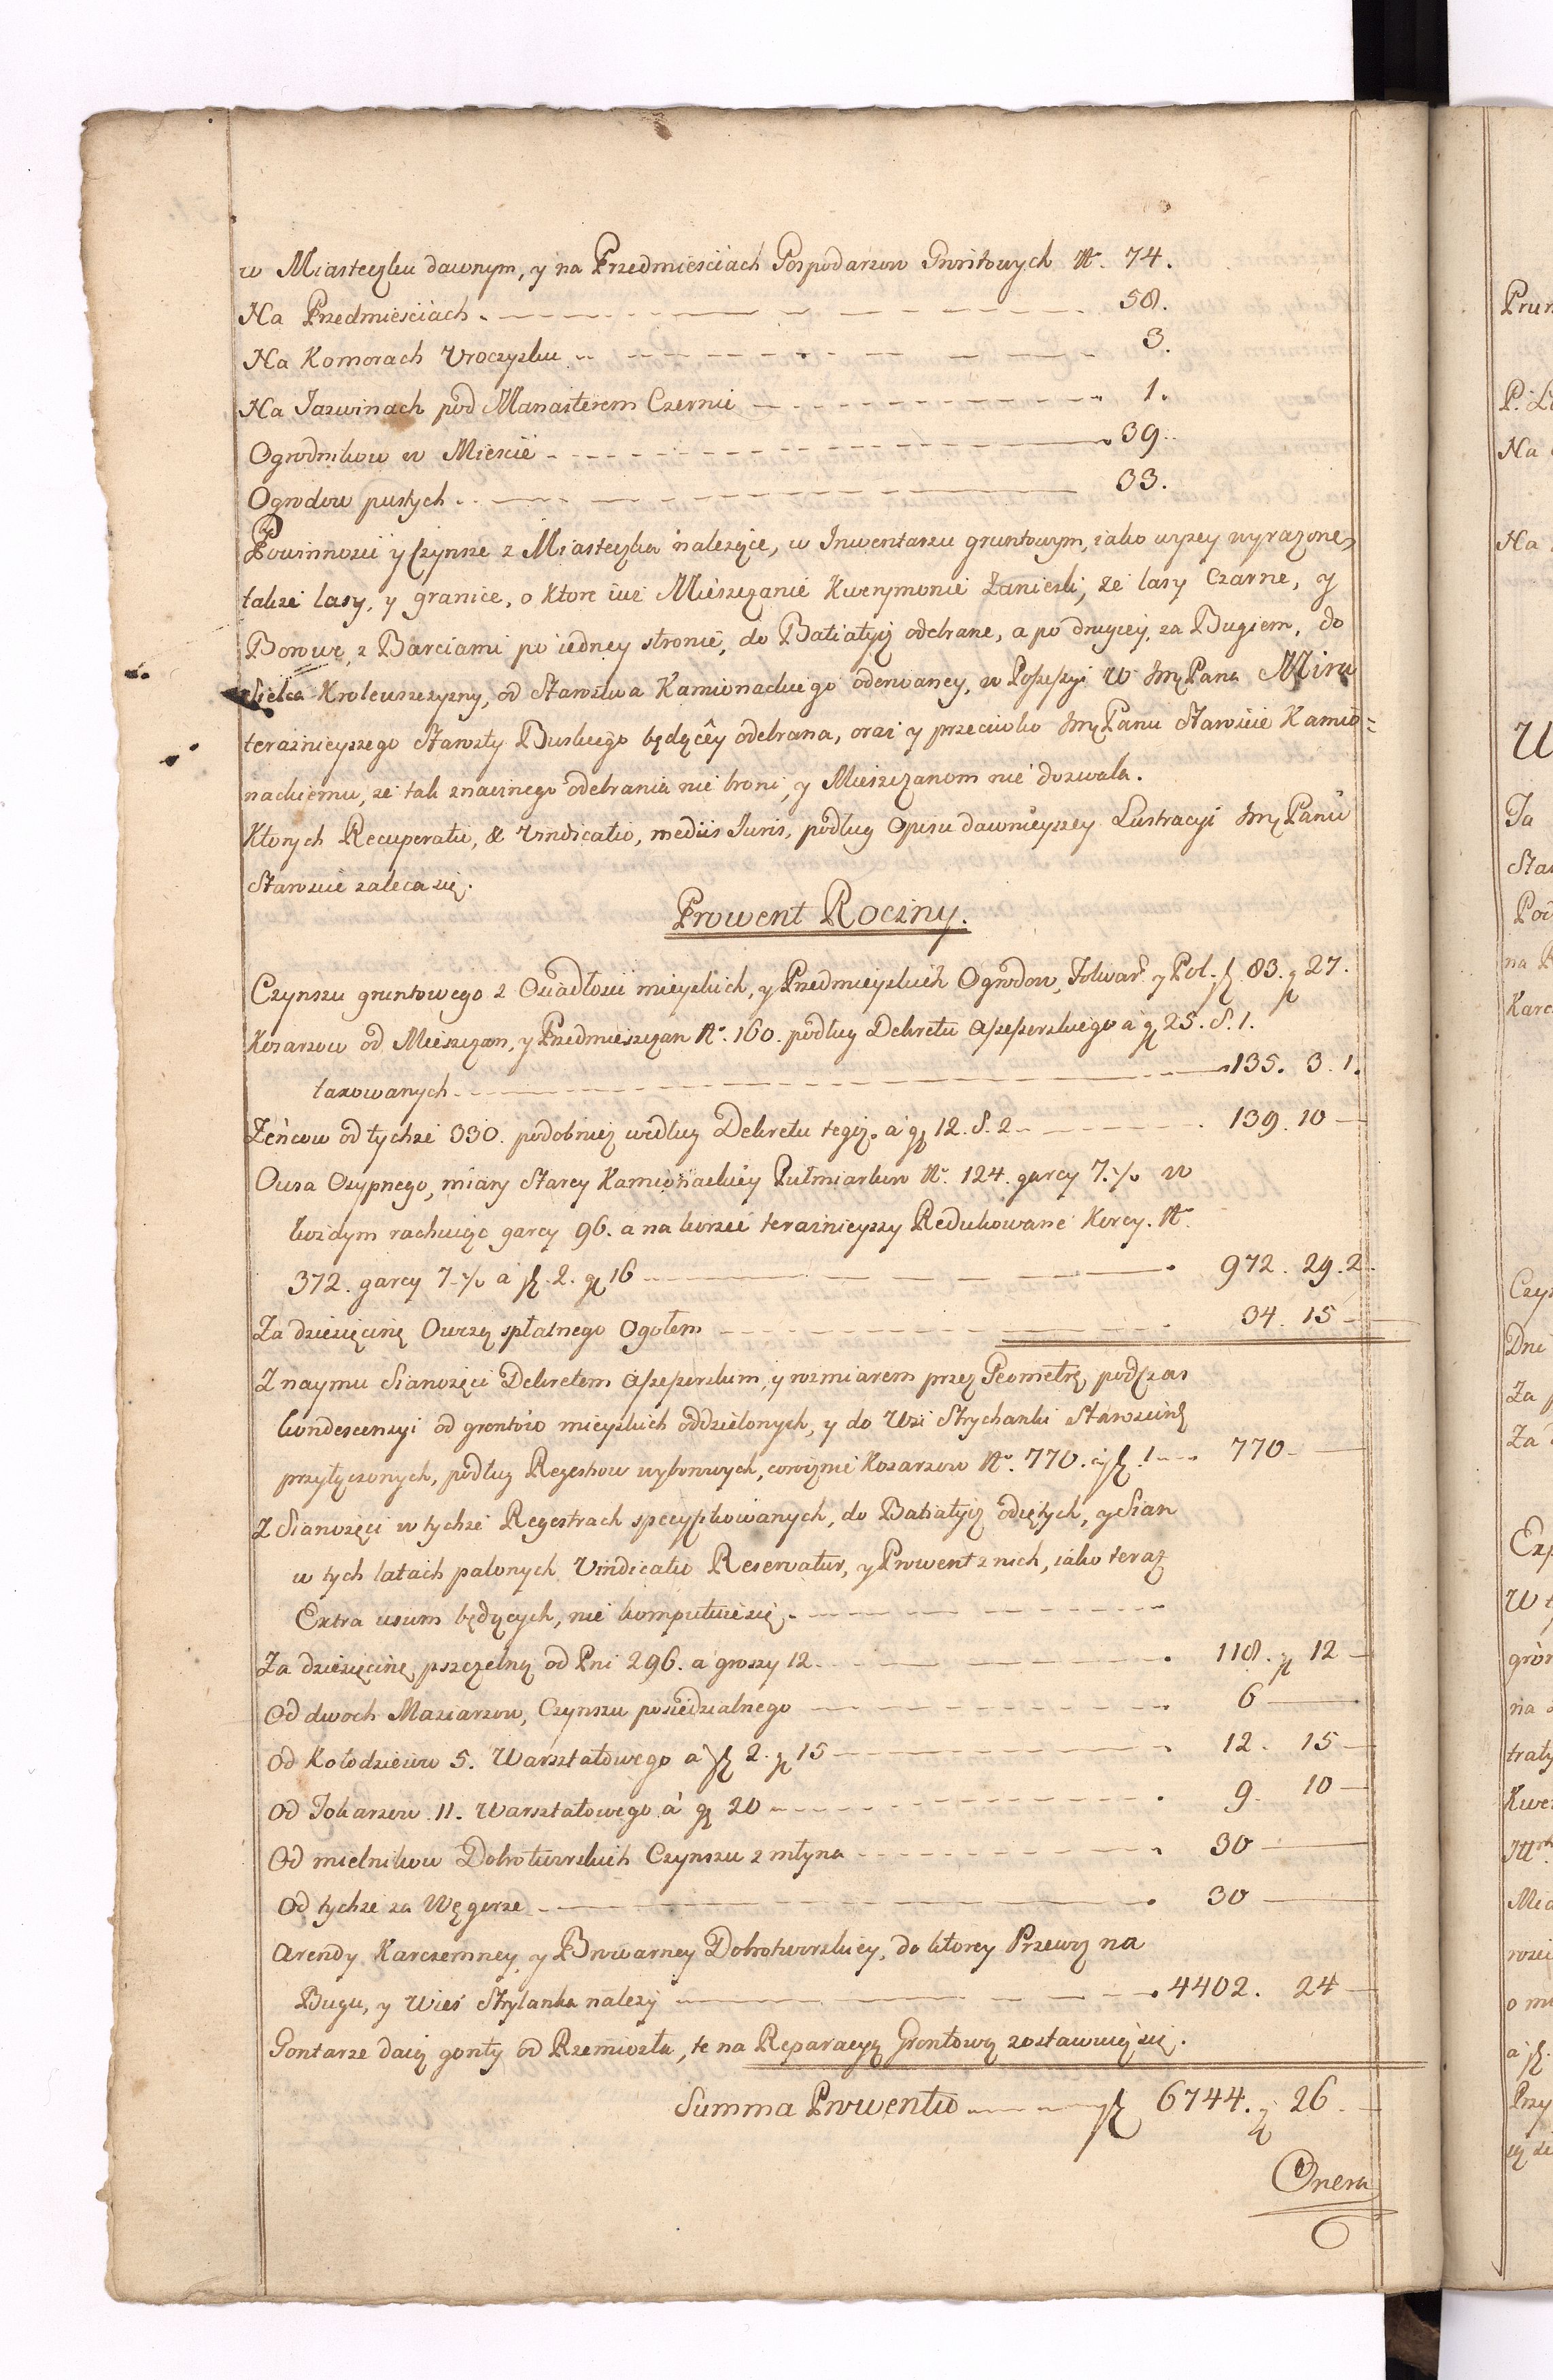 w Miasteczku dawnym, y na Przedmiesciach Gospodarzow Gruntowych Nr. 74.
Na Przedmiesciach 58.
Na Komorach Vroczysku 3.
Na Jazwinach pod Manasterem Czernie 1.
Ogrodnikow w Miescie 39.
Ogrodow pustych 33.
Powinnosci y Czynsze z Miasteczka nalezące, w Inwentarzu gruntowym, iako wyzey wyrazone,
takze lasy, y granice, o ktore iuz Mieszczanie Kwerymonie zanieśli, ze lasy Czarne, y
Borowe, z Barciami po iedney stronie, do Batiatycz odebrane, a po drugiey, za Bugiem, do
Sielca Kroleuszczyzny, od Starostwa Kamionackiego oderwaney, w Possessyi W JmęPana Mira
teraznieyszego Starosty Buskiego będącey odebrana, oraz y przeciwko JmęPanu Staroscie Kamio=
nackiemu, ze tak znacznego odebrania nie broni, y Mieszczanom nie dozwala.
Ktorych Recuperatio, & Vindicatio, mediis Juris, podług Opisu dawnieyszey Lustracyi JmęPanu
Staroscie zaleca się.
Prowent Roczny.
Czynszu gruntowego z Osiadłosci mieyskich, y Przedmieyskich Ogrodow, Folwar. y Pol. fl. 83. g 27.
Kosarzow od Mieszczan, y Przedmieszczan Nr. 160. podług Dekretu Assessorskiego a gr 25. S. 1.
taxowanych 135. 3. 1.
Zeńcow od tychze 330. podobniez według Dekretu tegoz. a gr 12. S. 2 139. 10
Owsa Osypnego, miary Starey Kamionackiey Pułmiarkow Nr. 124. garcy 7. w
kozdym rachuiąc garcy 96. a na korzec teraznieyszy Redukowane Korcy. Nr.
372. garcy 7 a fl. 2. gr 16 972. 29. 2.
Za dziesięcinę Owczą spłasnego Ogołem 34. 15
Z naymu Sianozęci Dekretem Assessorskim, y rozmiarem przez Geometrę podczas
kondescensyi od grontow mieyskich oddzielonych, y do Wsi Strychanki Staroscinej
przyłączonych, podług Regestrow wybornych, corocznie Kosarzow Nr. 770. a fl. 1 770
Z Sianozęci w tychze Regestrach specyfikowanych, do Batiatycz odiętych, y Sian
w tych latach palonych Vindicatio Reservatur, y Prowent z nich, iako teraz
Extra usum będących, nie komputuie się.
Za dziesięcinę pszczelną od Pni 296. a groszy 12 118. g 12
Od dwoch Maziarzow, Czynszu posiedzialnego 6
Od Kołodzieiow 5. Warsztatowego a fl 2. g 15 12. 15
Od Tokarzow 11. Warsztatowego a gr 20 9. 10
Od mielnikow Dobrotworskich Czynszu z młyna 30
Od tychze za Węgorze 30
Arendy Karczemney, y Browarney Dobrotworskiey, do ktorey Przewoz na
Bugu, y Wieś Strylanka nalezy 4402. 24
Gontarze daią gonty od Rzemiosła, te na Reparacyą Grontową zostawuią się.
Summa Prowentu fl 6744. g 26.
Onera